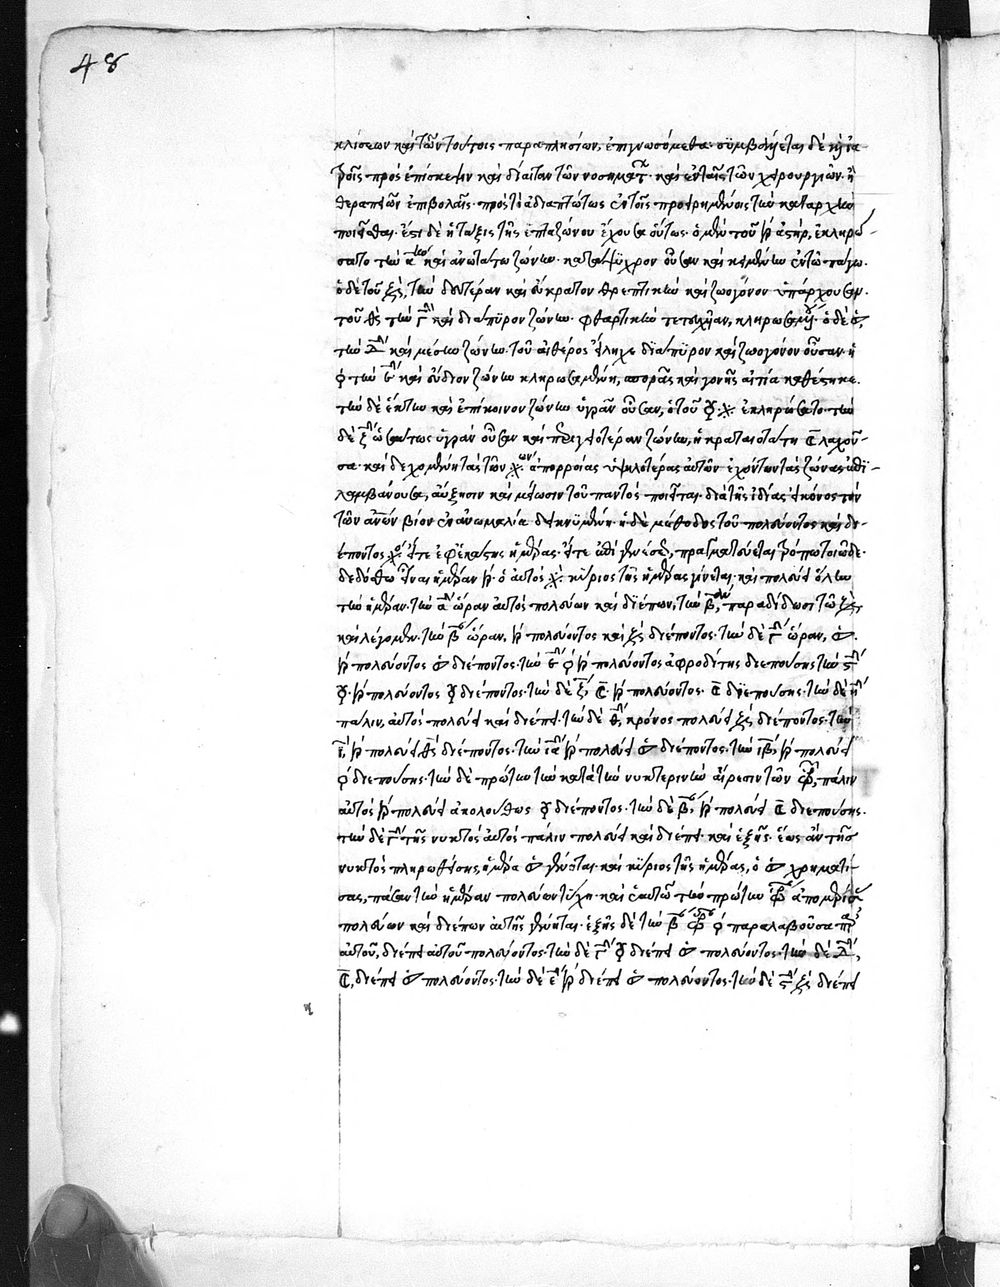 48
κλίσεων καὶ τῶν τούτοις παραπλησίων, ἐπιγνωσόμεθα· συμβάλλεται δὲ καὶ ἰα
τροῖς πρὸς ἐπίσκεψιν καὶ δίαιταν τῶν νοσημάτ· καὶ ἐν ταῖς τῶν χειρουργιῶν ἢ
θεραπειῶν ἐπιβολαῖς· πρὸς τὸ ἀδιαπτώτως ἐν τοῖς προειρημένοις τὴν καταρχὴν
ποιεῖσθαι· ἔστι δὲ ἡ τάξις τῆς ἑπταζώνου ἔχουσα οὕτως· ὁ μὲν τοῦ ♄ ἀστὴρ, ἐκληρώ
σατο τὴν α καὶ ἀνωτάτω ζώνην· κατάψυχρον οὖσαν καὶ κειμένην ἐν τῷ πάγω·
ὁ δὲ τοῦ ♃, τὴν δευτέραν καὶ εὔκρατον θρεπτικὴν καὶ ζωογόνον ὑπάρχουσαν·
τοῦ ♂ τὴν γ καὶ διάπυρον ζώνην· φθαρτικὴν κληρωσαμ· ὁ δὲ ☉,
τὴν δ καὶ μέσην ζώνην τοῦ αἰθέρος εἴληχε διάπυρον καὶ ζωογόνον οὖσαν· ἡ
♀ τὴν ε καὶ εὔδιον ζώνην κληρωσαμένη, σπορᾶς καὶ γονῆς αἰτία καθέστηκε·
τὴν δὲ ἕκτην καὶ ἐπίκοινον ζώνην ὑγρὰν οὖσαν, ὁ τοῦ ☿ ἐκληρώσατο· τὴν
δὲ ζ ὡσαύτως ὑγρὰν οὖσαν καὶ ζώνην, ἡ κραταιοτάτη ☾ λαχοῦ
σα· καὶ δεχομένη τὰς τῶν ἀπορροίας ὑψηλοτέρας αὐτῶν ἐχόντων τὰς ζώνας
λαμβάνουσα, αὔξησιν καὶ μείωσιν τοῦ παντὸς ποιεῖται· διὰ τῆς ἰδίας εἰκόνος τὸν
τῶν ἀνῶν βίον ἐν ἀνωμαλία δεικνυμένη· ἡ δὲ μέθοδος τοῦ πολεύοντος καὶ δι
έποντος εἴτε ἐφ' ἑκάστης ἡμέρας· εἴτε ἐπὶ γενέσε, πραγματεύεται τρόπῳ τοιῶδε·
δεδόσθω εἶναι ἡμέραν ♄· ὁ αὐτὸς κύριος τῆς ἡμέρας γίνεται· καὶ πολεύει ὅλην
τὴν ἡμέραν· τὴν α ὥραν αὐτὸς πολεύων καὶ διέπων, τὴν β, παραδίδωσι τῷ ♃,
καὶ λέγομεν· τὴν β ὥραν, ♄ πολεύοντος καὶ ♃ διέποντος· τὴν δὲ γ ὥραν, ♂·
♄ πολεύοντος ☉ διέποντος· τὴν ε ♀ ♄ πολεύοντος ἀφροδίτης διεπούσης τὴν ς
☿ ♄ πολεύοντος ☿ διέποντος· τὴν δὲ ζ, ☾ ♄ πολεύοντος· ☾ διεπούσης· τὴν δὲ η
πάλιν, αὐτὸς πολεύει καὶ διέπει· τὴν δὲ θ, κρόνος πολεύει ♃ διέποντος· τὴν
ι, ♄ πολεύει ♂ διέποντος· τὴν ια ♄ πολεύει ☉ διέποντος· τὴν ιβ, ♄ πολεύει
♀ διεπούσης· τὴν δὲ πρώτην τὴν κατὰ τὴν νυκτερινὴν αἵρεσιν τῶν ὡρ, πάλιν
αὐτὸς ♄ πολεύει ἀκολούθως ☿ διέποντος· τὴν δὲ β, ♄ πολεύει ☾ διεπούσης·
τὴν δὲ γ τῆς νυκτὸς αὐτὸς πάλιν πολεύει καὶ διέπει· καὶ ἑξῆς· ἕως ἂν τῆς
νυκτὸς πληρωθείσης, ἡμέρα ☉ γένηται· καὶ κύριος τῆς ἡμέρας, ὁ ☉ χρηματί
σας, πᾶσαν τὴν ἡμέραν πολεύων τύχη· καὶ τὴν πρώτην ὥρ
πολεύων καὶ διέπων αὐτῆς γένηται· ἑξῆς δὲ τὴν β ὥρ ♀ παραλαβοῦσα π
αὐτοῦ, διέπει αὐτοῦ πολεύοντος· τὴν δὲ γ ☿ διέπει ☉ πολεύοντος· τὴν δὲ δ,
☾, διέπει ☉ πολεύοντος· τὴν δὲ ε ♄ διέπει ☉ πολεύοντος· τὴν δὲ ς ♃ διέπει